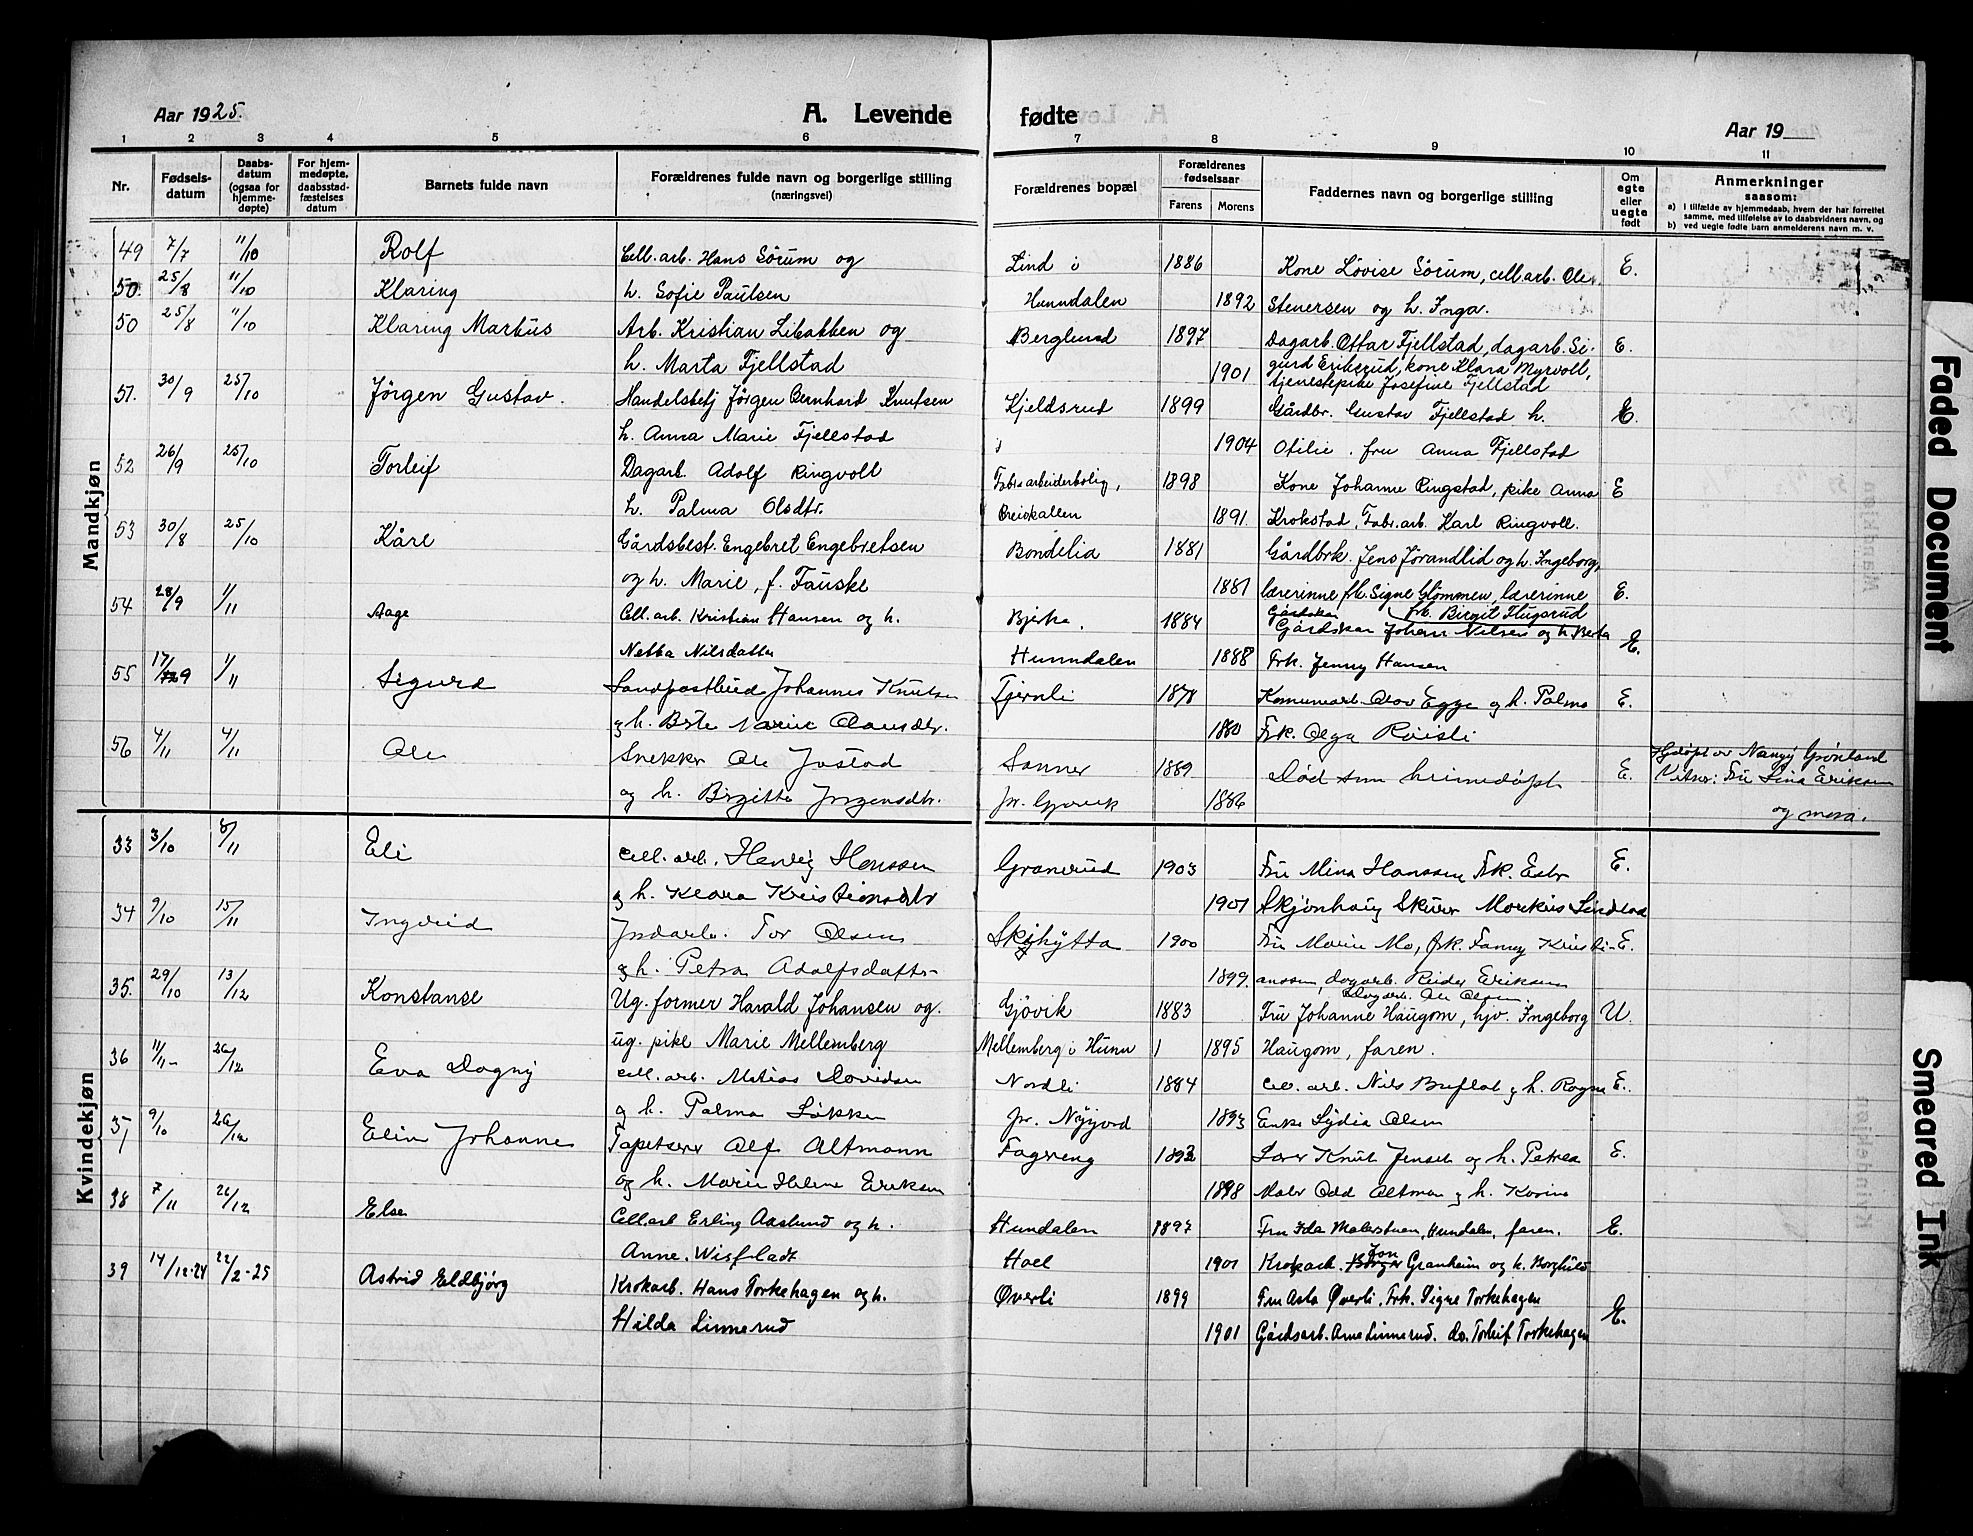 Aar 1925.
A. Levende
fødte
Aar 19
1 2 3 4 5 6
7 8 9 10 11
Nr.
Fødsels-
datum
Daabs-
datum
(ogsaa for
hjemme-
døpte)
For hjem-
medøpte,
daabsstad-
fæstelses
datum
Barnets fulde navn
Forældrenes fulde navn og borgerlige stilling
(næringsvei)
Forældrenes bopæl
Forældrenes
fødselsaar
Farens
Morens
Faddernes navn og borgerlige stilling
Om
egte
eller
uegte
født
Anmerkninger
saasom:
a) i tilfælde av hjemmedaab, hvem der har forrettet
samme, med tilføielse av to daabsvidners navn, og
b) ved uegte fødte barn anmelderens navn m. v.
Mandkjøn
49 7/7 11/10 Rolf Cell.arb. Hans Sørum og Lind i 1886 Kone Lovise Sørum, cell.arb. Ole E.
50. 25/8 11/10 Klaring h. Sofie Paulsen Hunndalen 1892 Stenersen og h. Inga.
50 25/8 11/10 Klaring Markus Arb. Kristian Libakken og Berglund 1897 Dagarb. Ottar Fjellstad, dagarb. Si- E.
h. Marta Fjellstad 1901 gurd Eriksrud, kone Klara Myrvoll,
tjenestepike Josefine Fjellstad
51. 30/9 25/10 Jørgen Gustav. Handelsbetj Jørgen Bernhard Knutsen Kjeldsrud 1899 Gårdbr. Gustav Fjellstad h. E.
h. Anna Marie Fjellstad 1904 Otilie. fru Anna Fjellstad
52 26/9 25/10 Torleif Dagarb. Adolf Ringvoll Fabr.arbeiderbolig, 1898 Kone Johanne Ringstad, pike Anna E
h. Palma Olsdtr. Breiskallen 1891. Krokstad, Fabr.arb. Karl Ringvoll.
53 30/8 25/10 Kåre Gårdsbest. Engebret Engebretsen Bondelia 1881 Gårdbrk. Jens Jorandlid og h. Ingeborg,
og h. Marie, f. Fauske 1881 lærerinne frk. Signe Glommen, lærerinne E.
frk. Birgit Flugsrud
54 28/9 1/11 Aage Cell.arb. Kristian Hansen og h. Bjerke. 1884 Gårdskar Johan Nilsen og h. Berta E.
Netta Nilsdatter Hunndalen 1888 Frk. Jenny Hansen
55 17/9 1/11 Sigurd Landpostbud Johannes Knutsen Tjernli 1878 Komunearb. Olov Egge og h. Palma E.
og h. Berte Marie Clausdtr. 1880 Frk. Olga Røisli
56 4/11 4/11 Ole Snekker Ole Jostad Sanner 1889 Død som hjemmedøpt E. Hj.døpt av Nanny Grønland
og h. Birgitte Jørgensdtr. pr. Gjøvik 1886 Vitner: Fru Lina Eriksen
og mora.
Kvindekjøn
33 3/10 8/11 Eli Cell. arb. Henrij Hanssen Granerud 1903 Fru Mina Hanssen Frk. Ester E.
og h. Klara Kristiansdtr 1901 Skjønhaug Skurer Markus Lindstad
34 9/10 15/11 Ingrid Jndarb. Tor Olsen Skihytta 1900 Fru Marie Mo, frk. Fanny Kristi- E.
og h. Petra Adolfsdatter 1899. anssen, dagarb. Reidar Eriksen
Dagarb. Ole Olsen
35. 29/10 13/12 Konstanse Ug. former Harald Johansen og Gjøvik 1883 Fru Johanne Haugom, hjv. Ingeborg U.
ug. pike Marie Mellemberg Mellemberg i Hunn 1895 Haugom, faren.
36 11/11 26/12 Eva Dagny Cell. arb. Matias Davidsen Nordli 1884 Cell. arb. Nils Breflat og h. Ragna E.
og h. Palma Løkken pr. Nygjord 1893 Enke Lydia Olsen
37 9/10 26/12 Elin Johanne Tapetserer Alf Altmann Fagereng 1892 Lærer Knut Jenset og h. Petrea E.
og h. Marie Helene Eriksen 1898 Maler Odd Altman og h. Karine
38 7/11 26/12 Else Cell arb Erling Aaslund og h. Hundalen 1897 Fru Ida Malerstuen, Hundalen, faren. E.
Anne. Wisfladt Hoel 1901 Krokarb. Jon Granheim og h. Borghild
39 14/12-24 22/2-25 Astrid Eldbjørg Krokarb. Hans Torkehagen og h. Øverli 1899 Fru Asta Øverli. Frk. Signe Torkehagen E.
Hilda Linnerud 1901 Gårdsarb. Arne Linnerud. do. Torleif Torkehagen
Faded Document
Smeared Ink